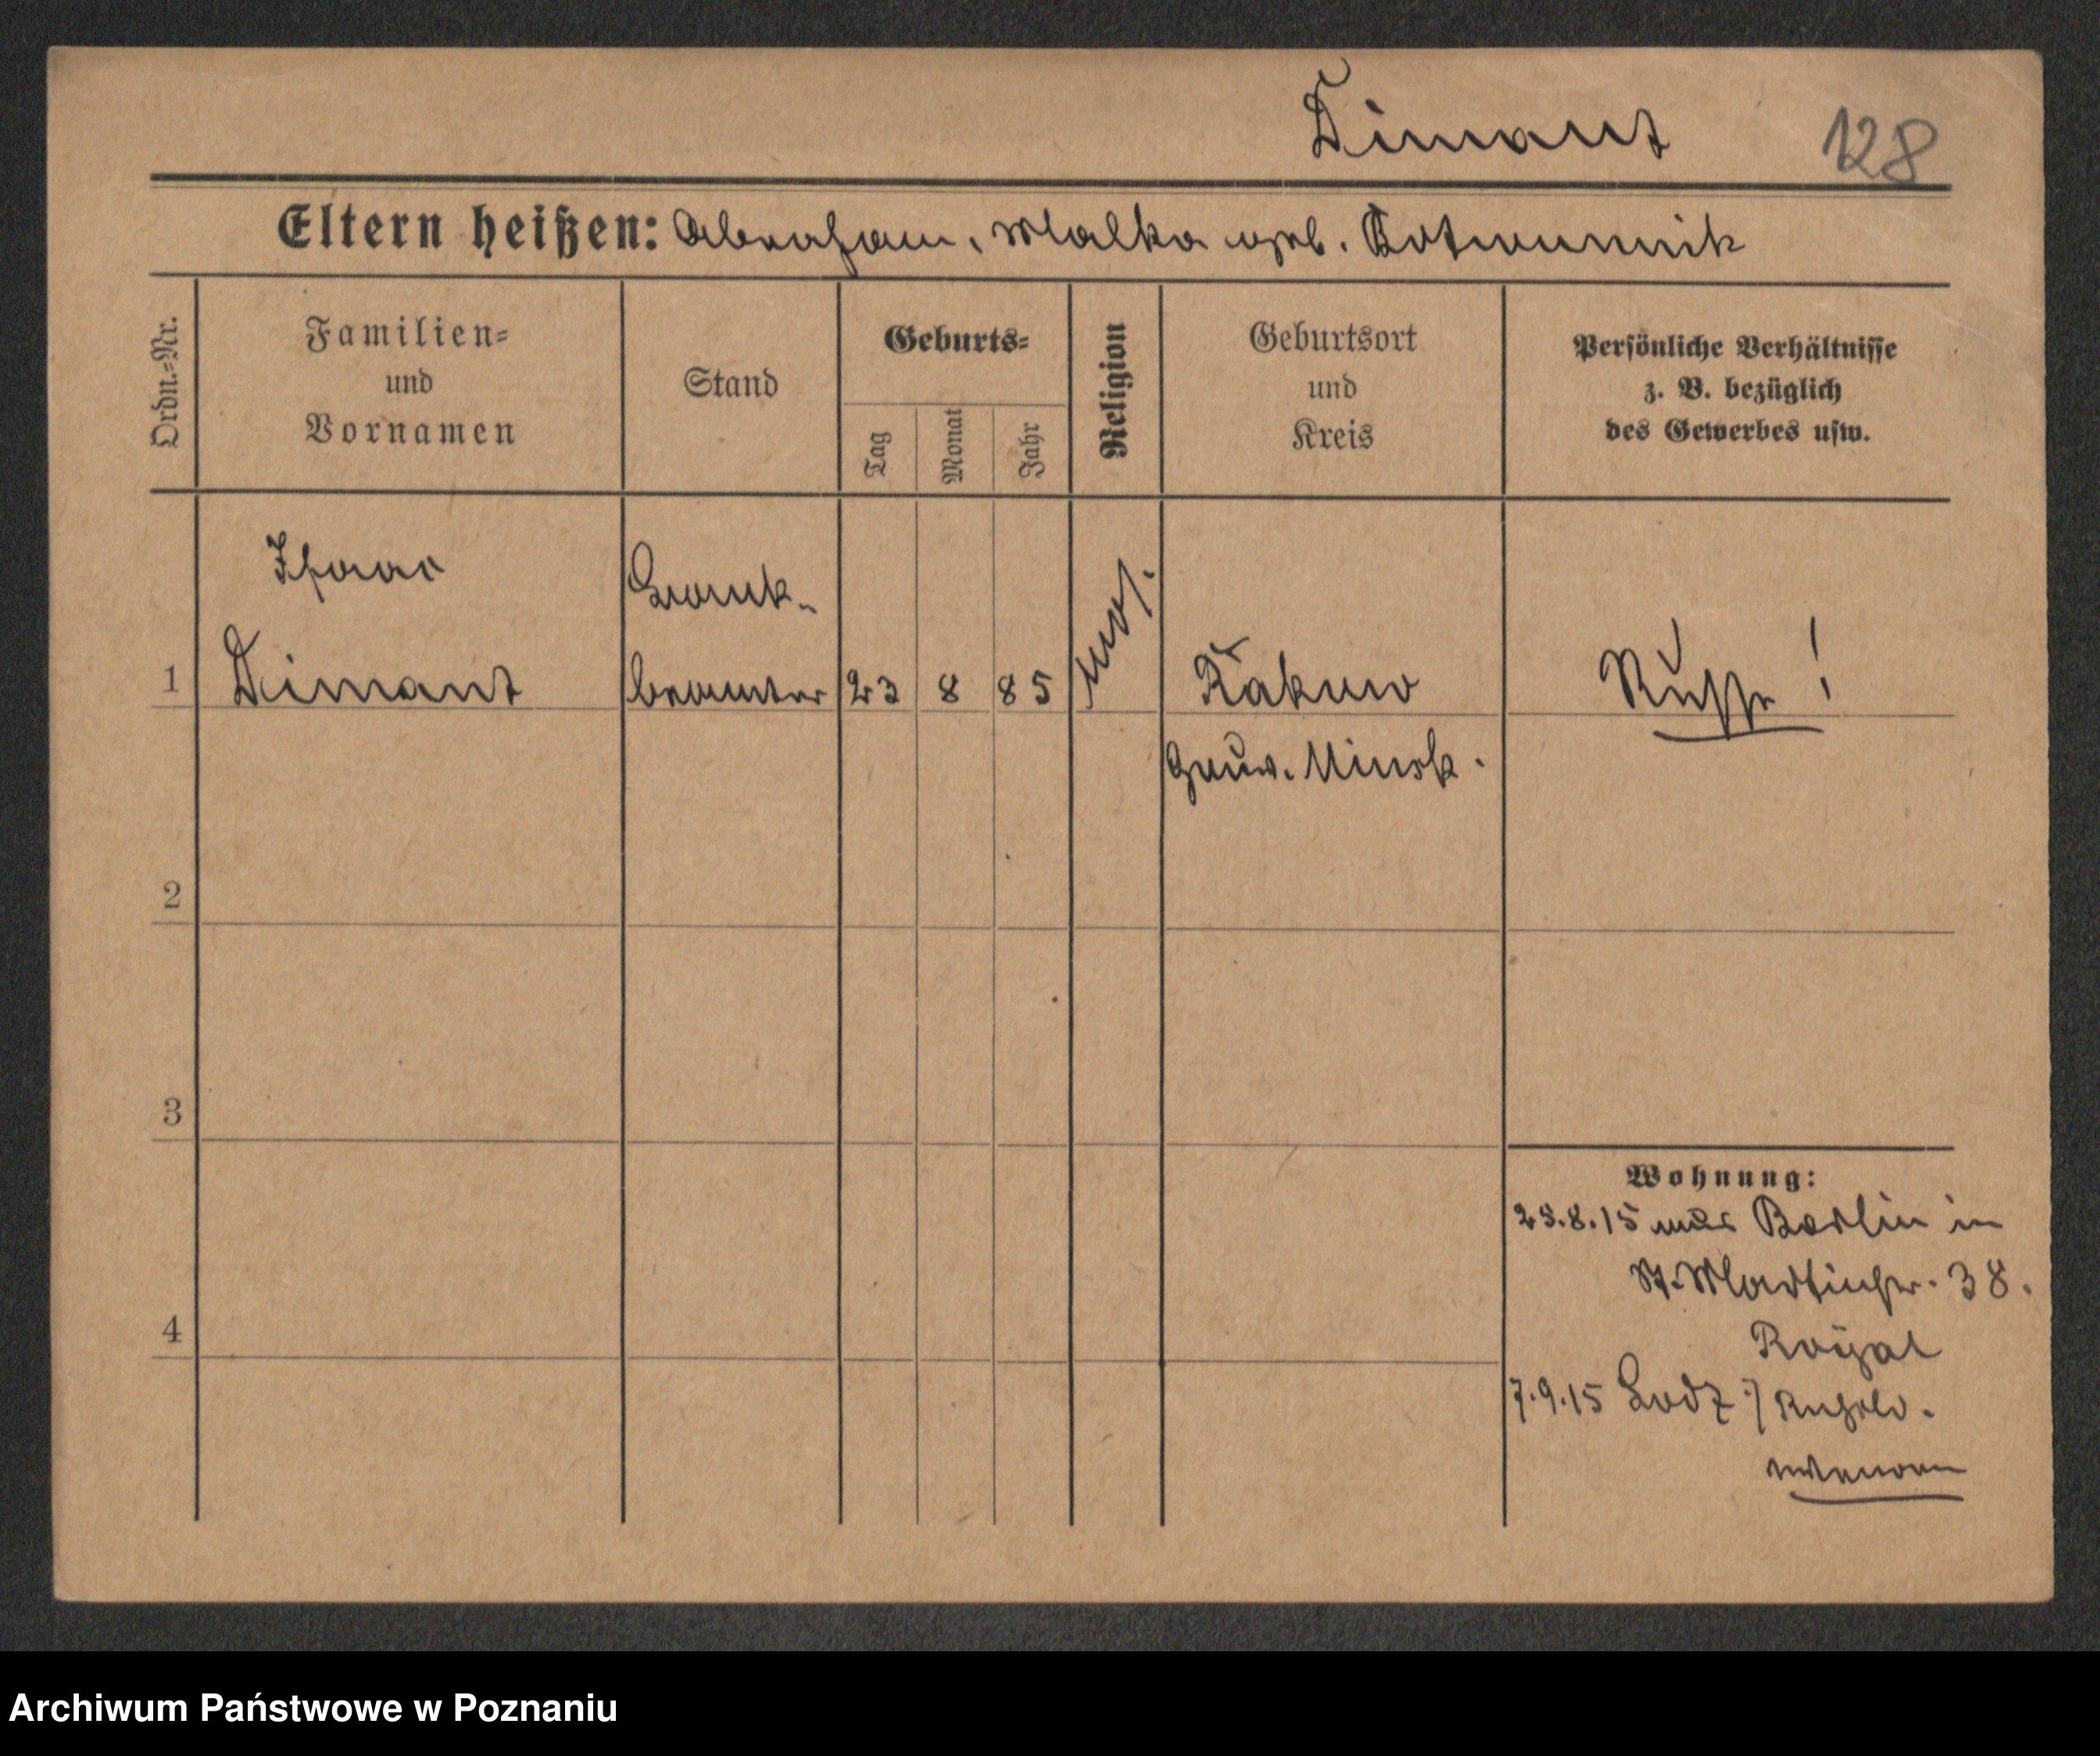 Dimant 128
Eltern heißen: Abraham, Malka geb.
Ordn.-Nr.
Familien-
und
Vornamen
Stand
Geburts-
Tag
Monat
Jahr
Religion
Geburtsort
und
Kreis
Persönliche Verhältnisse
z. B. bezüglich
des Gewerbes usw.
Isaac
Bank-
1 Dimant beamter 23 8 85 mos. Rakow Russe!
Gouv. Minsk.
2
3
4
Wohnung:
25.8.15 aus Berlin in
St. Martinstr. 38.
Royal
7.9.15 Lodz
Archiwum Państwowe w Poznaniu